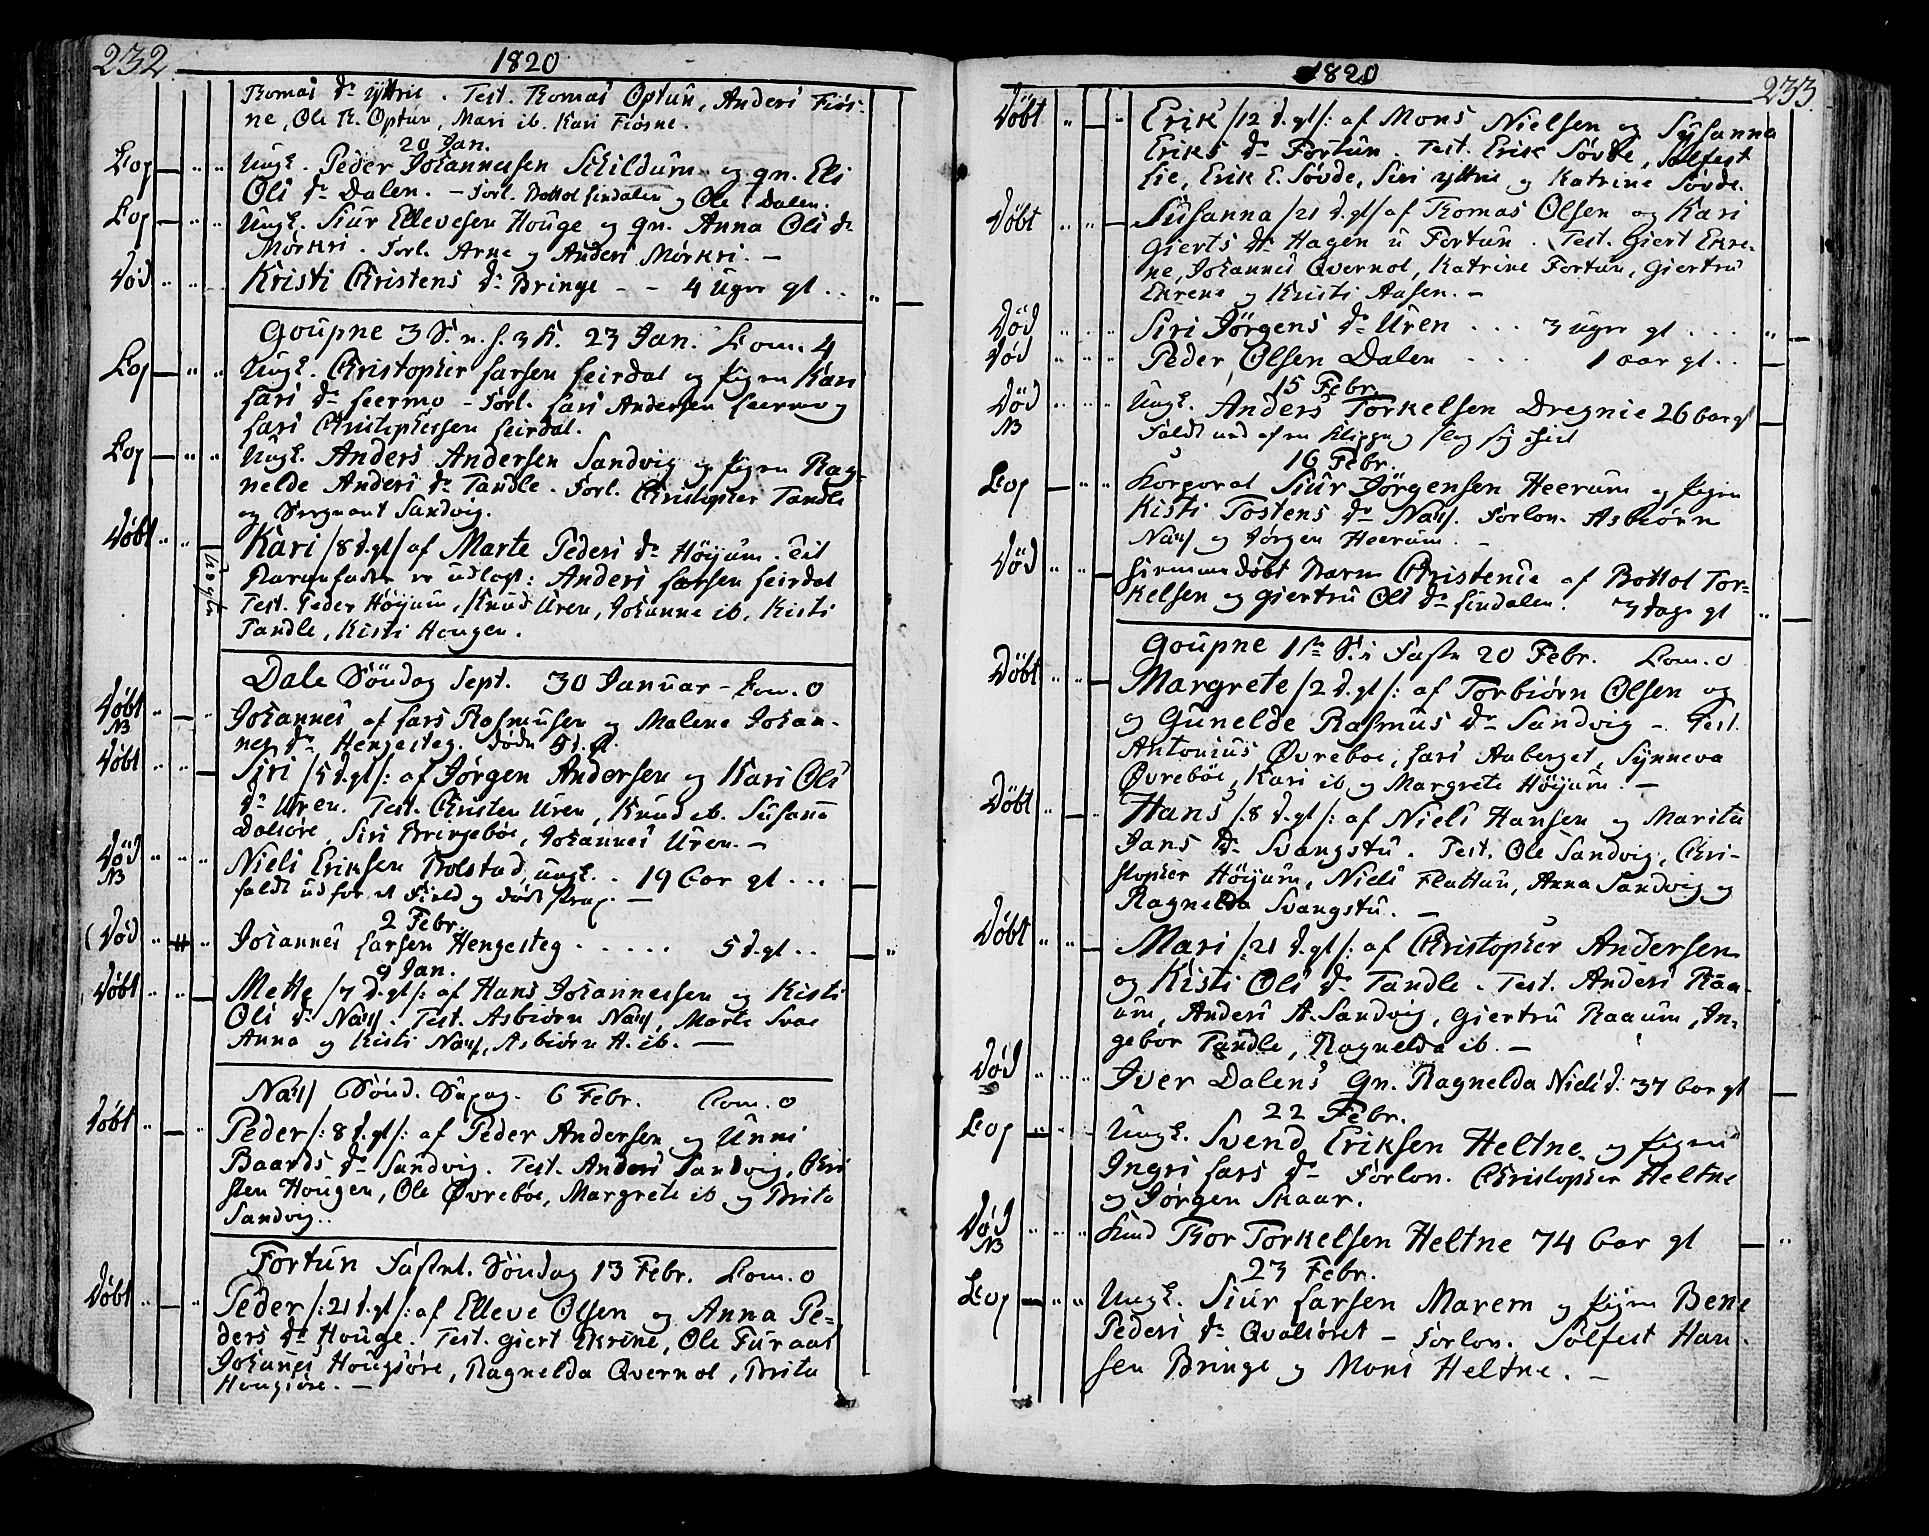 232. 1820
Thomas dr yttrie. Test. Thomas Optun, Anders Fiøs-
ne, Ole Th. Optun, Mari ib. Kari Fiøsne.
20 Jan.
Cop Ungk. Peder Johannessen Schildum og qn. Eli
Ols dr Dalen. - Forl. Bottol Lindalen og Ole i Dalen.
Cop Ungk. Siur Ellevesen Houge og qn. Anna Ols dr
Mørkri. Forl. Arne og Anders Mørkri. -
Død Kristi Christens dr Bringe - - 4 Uger gl..
Goupne 3 S. n. h. 3 K. 23 Jan. Com. 4
Cop Ungk. Christopher Larsen Leirdal og Pigen Kari
Lars dr Leermo - Forl. Lars Andersen Leermo og
Lars Christophersen Leirdal.
Cop Ungk. Anders Andersen Sandvig og Pigen Rag-
nelde Anders dr Tandle. Forl. Christopher Tandle
og Sergeant Sandvig.
Døbt Kari /8 d. gl/ af Marte Peders dr Høijum. Til
Barnefader er udlagt: Anders Larsen Leirdal
Test. Peder Høijum, Knud Uren, Johanne ib, Kisti
Tandle, Kisti Hougen.
Dale Søndag Sept. 30 Januar - Com. 0
Døbt NB Johannes af Lars Rasmusen og Malene Johan-
nes dr Hengesteg. døde
Døbt Siri /5 d. gl/: af Jørgen Andersen og Kari Ols
dr Uren. Test. Christen Uren, Knud ib. Susanne
Dalsøre, Siri Bringebøe, Johannes Uren. -
Død NB Niels Eriksen Bolstad, ungk.. 19 Aar gl...
faldt ud for et Field og døde strax. -
2 Febr.
(Død Johannes Larsen Hengesteg ..... 5 d. gl..
9 Jan.
Døbt Mette /7 d. gl/: af Hans Johannessen og Kisti
Ols dr Næss. Test. Asbiørn Næss, Marte Svae
Anna og Kisti Næss, Asbiørn A. ib. -
Næss Sønd. Sexag. 6 Febr. Com. 0
Døbt Peder /: 8 d. gl/: af Peder Andersen og Unni
Baards dr Sandvig. Test. Anders Sandvig, Chri
sten Hougen, Ole Øvrebøe, Margrete ib og Brita
Sandvig..
Fortun Fastel. Søndag 13 Febr. Com. 0
Døbt Peder /: 21 d. gl/: af Elleve Olsen og Anna Pe-
ders dr Houge. Test. Giert Ekrene, Ole Furaas
Johanes Hougsøre, Ragnelda Qvernol, Brita
Hougsøre. -
1820 233
Døbt Erik /12 d. gl/: af Mons Nielsen og Sysanna
Eriks dr Fortun. Test. Erik Søvde, Solfest
Lie, Erik E. Søvde, Siri yttrie og Katrine Søvde.
Døbt Susanna /21 d. gl/ af Thomas Olsen og Kari
Gierts dr Hagen u Fortun. Test. Giert Ekre-
ne, Johannes Qvernol, Katrine Fortun, Giertru
Ekrene og Kristi Aasen. -
Død Siri Jørgens dr Uren ... 3 uger gl ...
Død Peder Olsen Dalen ... 1 aar gl..
15 Febr.
Død NB Ungk. Anders Torkelsen Dregnie 26 aar gl
Faldt ned af en Klippe og slog sig ihiel
16 Febr.
Cop Korporal Siur Jørgensen Heerum og Pigen
Kisti Tostens dr Næss. Forlov. Asbiørn
Næss og Jørgen Heerum. -
Død hiemmedøbt Barn Christence af Bottol Tor-
kelsen og Giertru Ols dr Lindalen. 3 dage gl
Goupne 1ste S. i Faste 20 Febr. Com. 0
Døbt Margrete /2 d. gl/: af Torbiørn Olsen og
og Gunelde Rasmus dr Sandvig - Test.
Antonius Øvrebøe, Lars Aaberget, Synneva
Øvrebøe, Kari ib og Margrete Høijum. -
Døbt Hans /: 8 d. gl/: af Niels Hansen og Marita
Jans dr Svangstu. Test. Ole Sandvig, Chri-
stopher Høijum, Niels Flattun, Anna Sandvig og
Ragnelda Svangstu. -
Døbt Mari /: 21 d. gl/: af Christopher Andersen
og Kisti Ols dr Tandle. Test. Anders Raa-
um, Anders A. Sandvig, Giertru Raaum, In-
gebor Tandle, Ragnelda ib. -
Død Iver Dalens Qn. Ragnelda Niels d: 37 Aar gl
22 Febr.
Cop Ungk. Svend Eriksen Heltne og Pigen
Ingri Lars dr Forlov. Christopher Heltne
og Jørgen Skaar.
Død NB Thor Torkelsen Heltne 74 Aar gl
23 Febr.
Cop Ungk. Siur Larsen Marem og Pigen Bene
Peders dr Qvalsøret - Forlov. Solfest Han-
sen Bringe og Mons Heltne. -